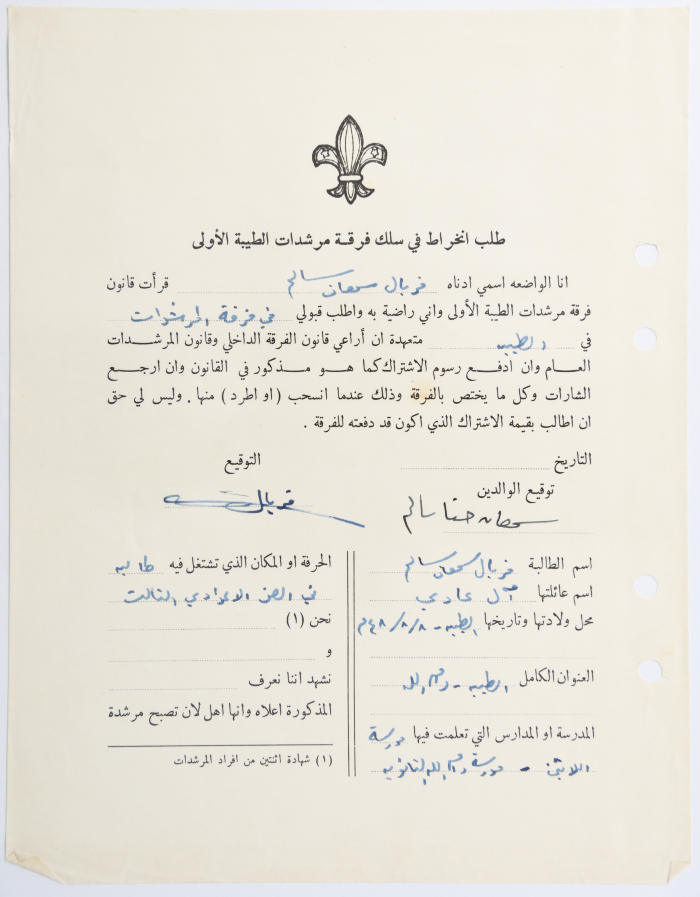 طلب انخراط في سلك فرقة مرشدات الطيبة الأولى
انا الواضعه اسمي ادناه فريال سمعان سالم قرأت قانون
فرقة مرشدات الطيبة الأولى واني راضية به واطلب قبولي في فرقة المرشدات
في الطيبه متعهدة ان أراعي قانون الفرقة الداخلي وقانون المرشدات
العام وان ادفع رسوم الاشتراك كما هو مذكور في القانون وان ارجع
الشارات وكل ما يختص بالفرقة وذلك عندما انسحب (او اطرد) منها. وليس لي حق
ان اطالب بقيمة الاشتراك الذي اكون قد دفعته للفرقة .
التاريخ
التوقيع
فريال
توقيع الوالدين
سمعان حنا سالم
اسم الطالبة فريال سمعان سالم
اسم عائلتها آل عادي
محل ولادتها وتاريخها الطيبه - ٨/٨/٤٨م
العنوان الكامل الطيبه - رام الله
المدرسة او المدارس التي تعلمت فيها مدرسة
اللاتين - مدرسة رام الله الثانويه
الحرفة او المكان الذي تشتغل فيه طالبه
في الصف الاعدادي الثالث
نحن (١)
و
نشهد اننا نعرف
المذكورة اعلاه وانها اهل لان تصبح مرشدة
(١) شهادة اثنتين من افراد المرشدات